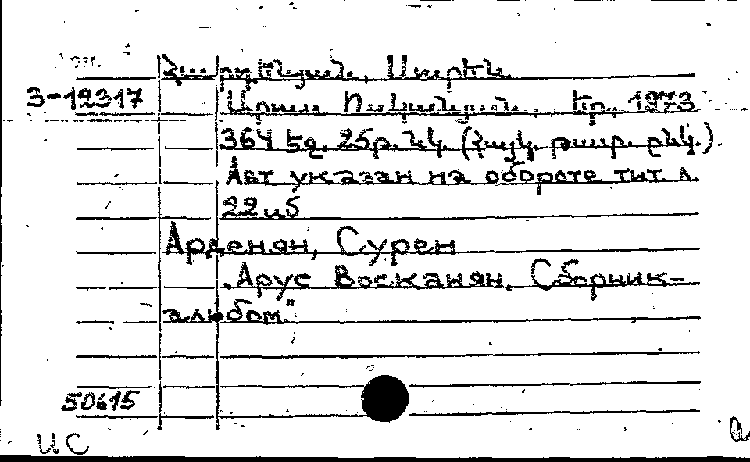 Սուրեն
3-12317 Արուս Ոսկանյան. Եր., 1973
364 եզ. 25ր. նկ. (հայկ. թատր. ընկ.)
Авт указан на обороте тит. л.
22ս5
Арденян, Сурен
"Арус Восканян. Сборник-
альбом"
50615